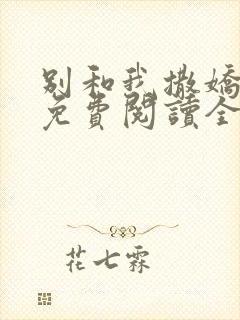 別和我撒嬌
免費閱讀全
花七霖